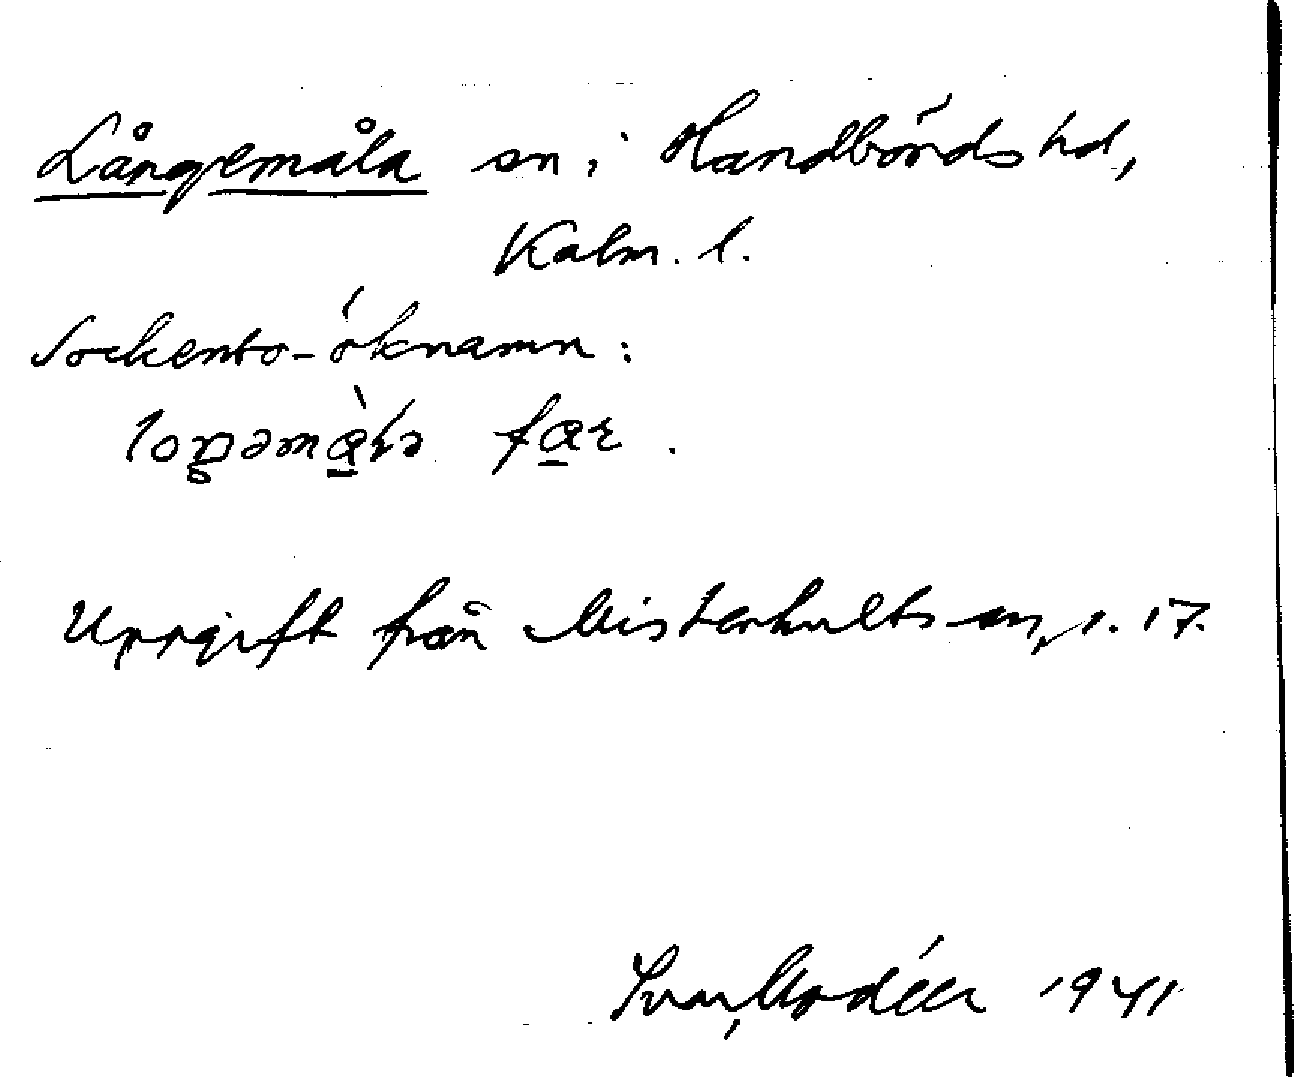 Långemåla sn i Handbörds hd,
Kalm. l.
Sockenbo-öknamn:
loŋəmɑ̀ɽə fɑɽ.
Uppgift från Misterhults sn, s. 17.
Ivar Modéer 1941